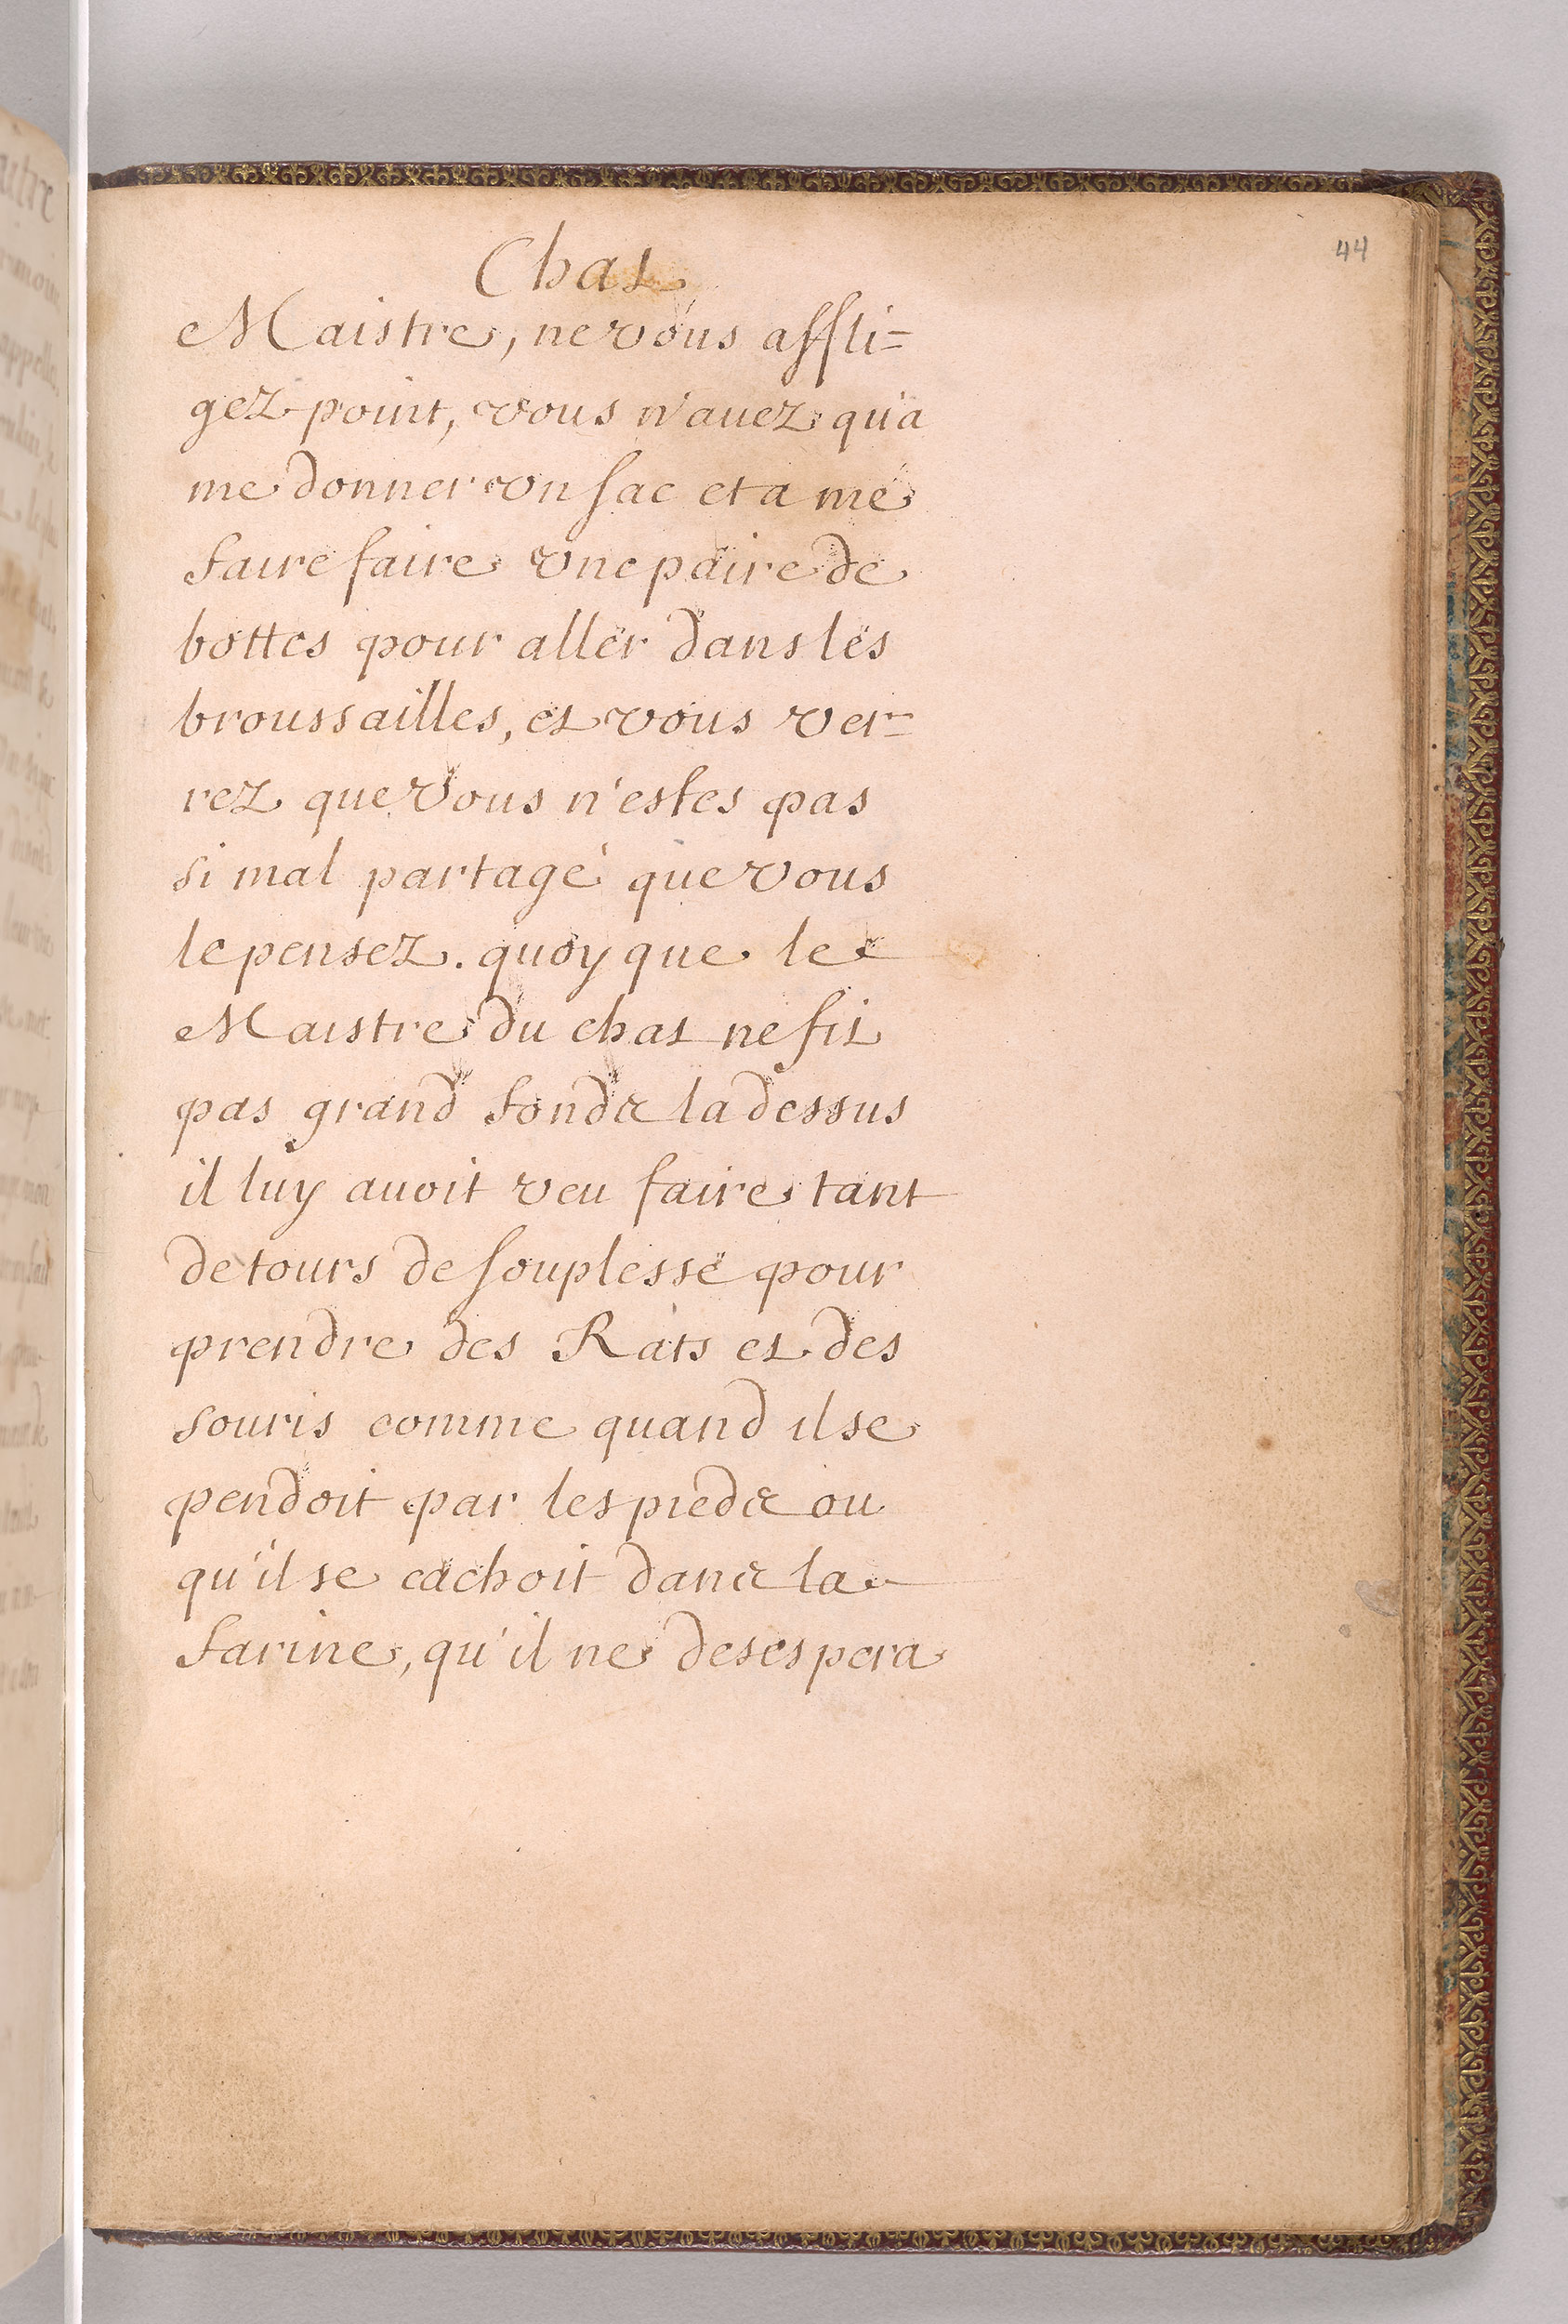 44
Chat
Maistre, ne vous affli=
gez point, vous n'auez qu'a
me donner vn sac et a me
faire faire vne paire de
bottes pour aller dans les
broussailles, et vous ver=
rez que vous n'estes pas
si mal partagé que vous
le pensez. quoy que le
Maistre du chat ne fit
pas grand fonds la dessus
il luy auoit veu faire tant
de tours de souplesse pour
prendre des Rats et des
souris comme quand il se
pendoit par les pieds ou
qu'il se cachoit dans la
farine, qu'il ne desespera